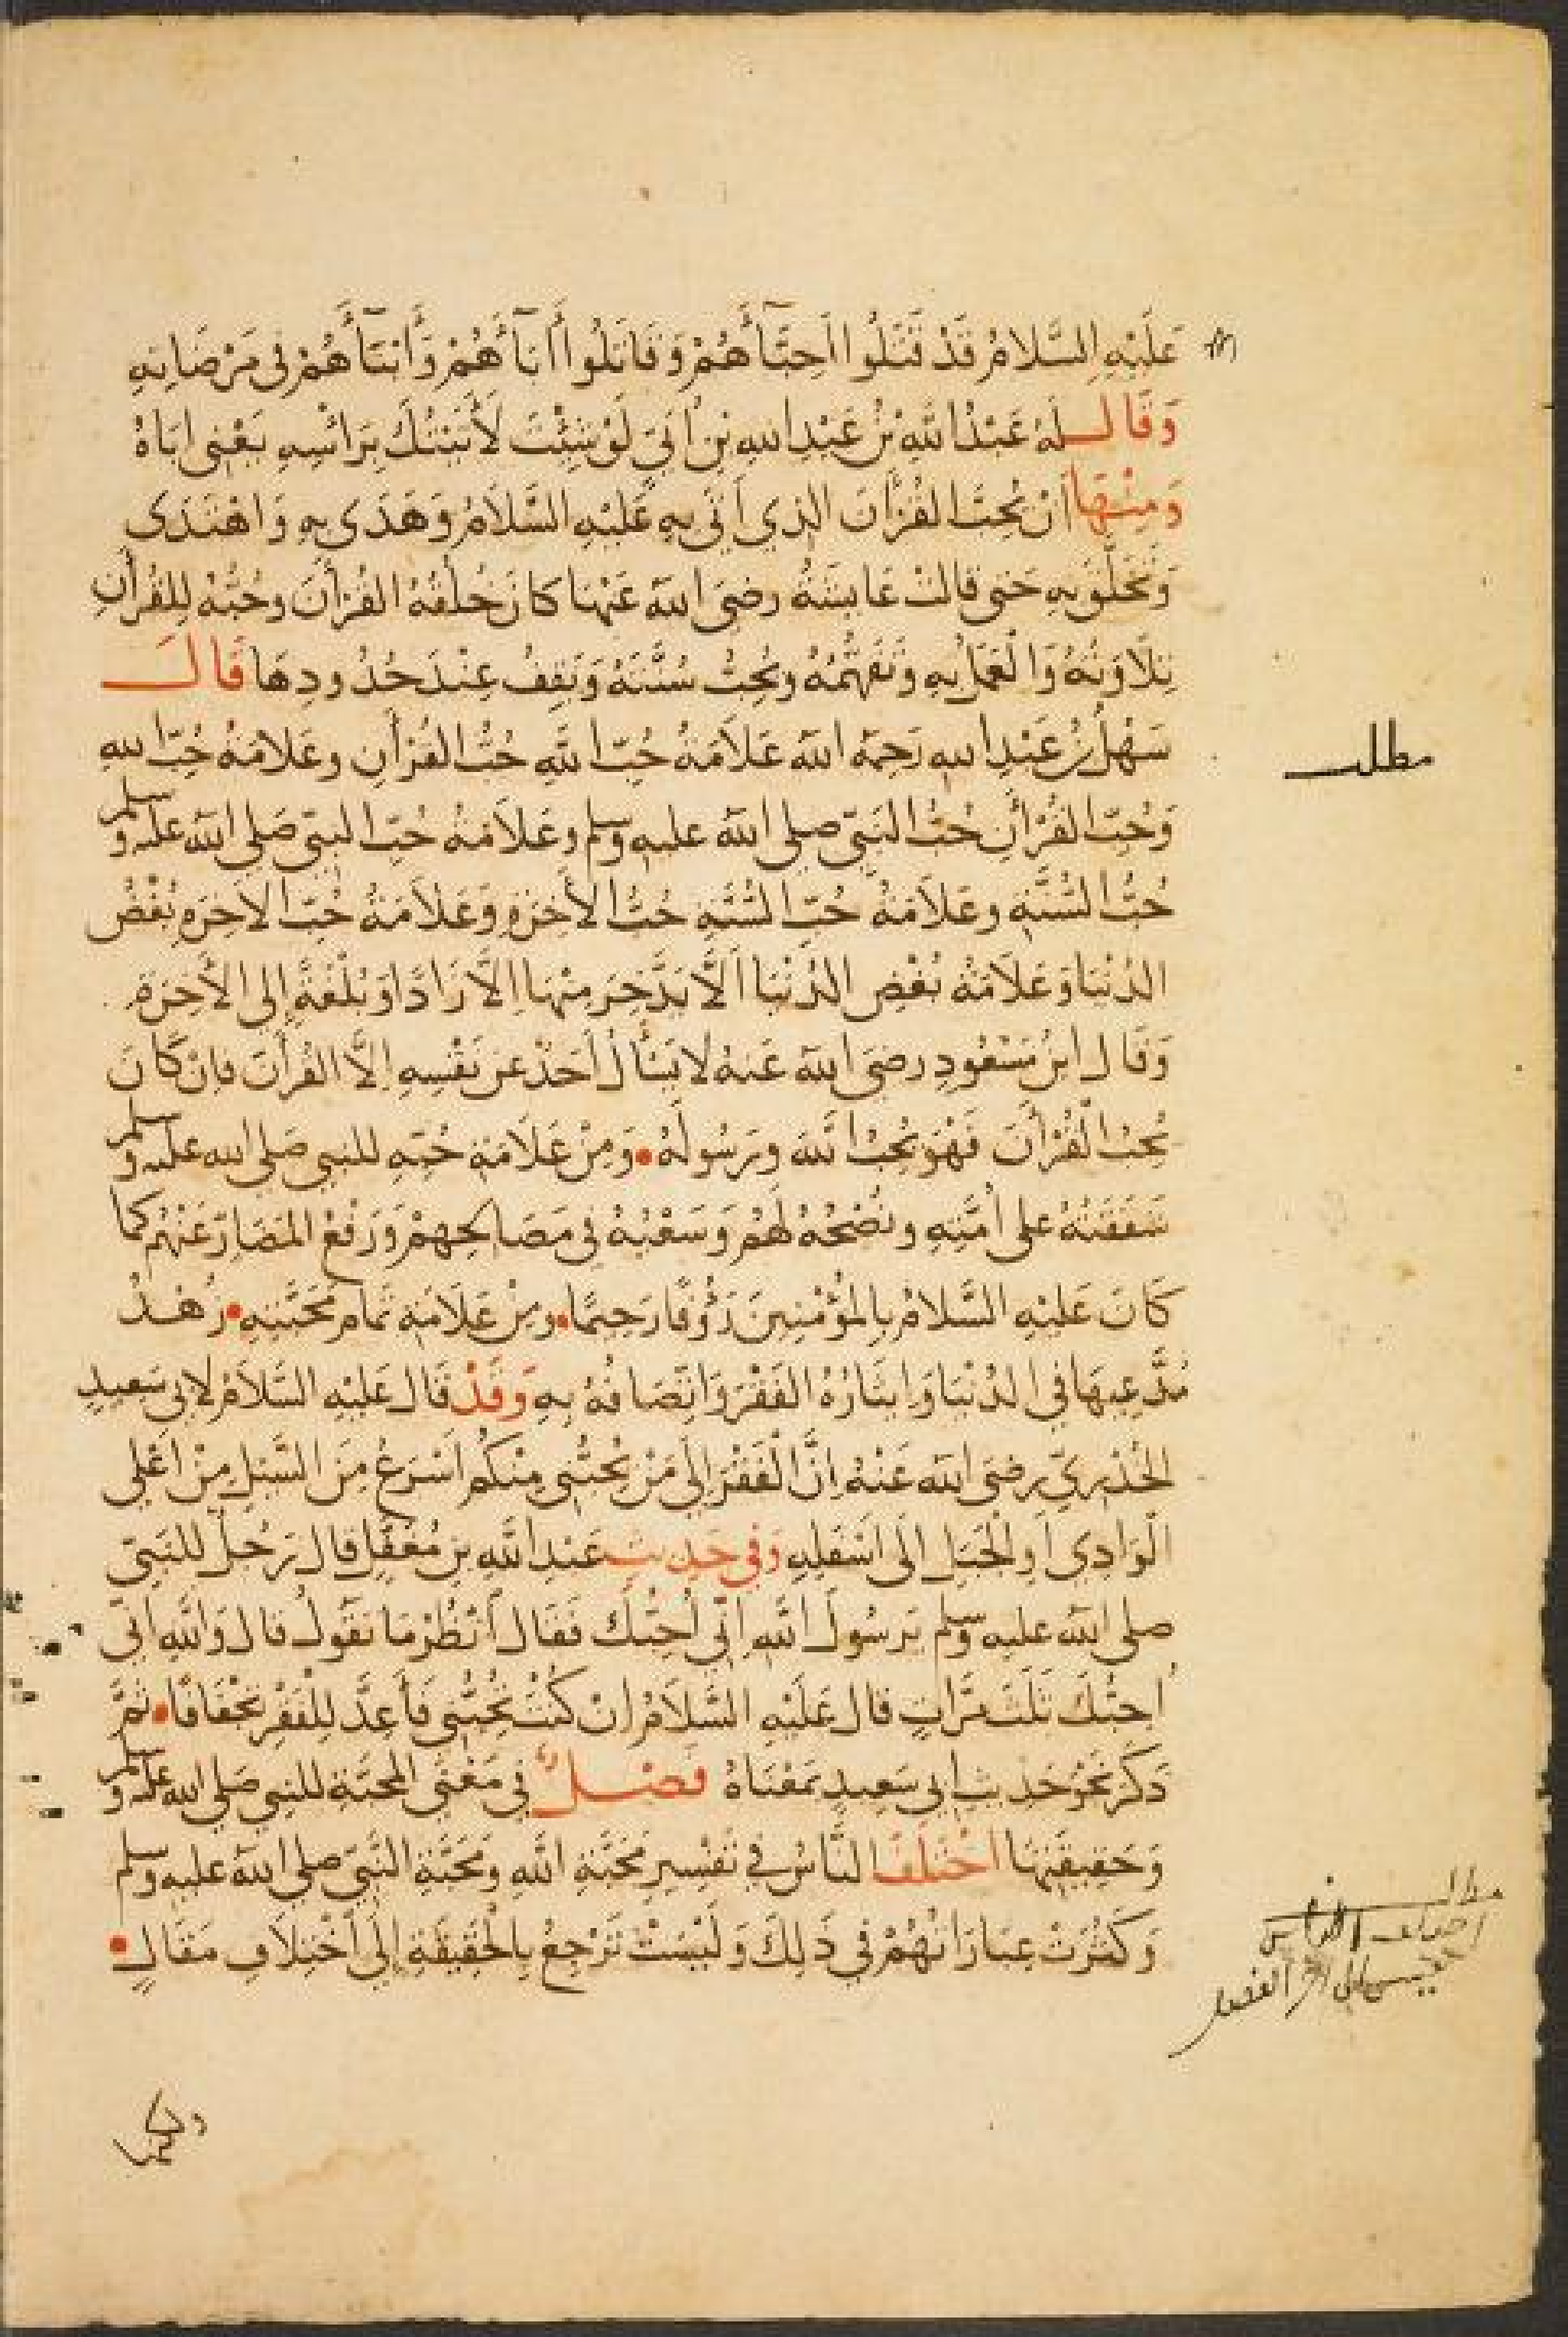 عَلَيْهِ السَّلَامُ قَدْ قَتَلُوا اَحِبَّاءَهُمْ وَقَاتَلُوا أَبَاءَهُمْ وَأَبْنَاءَهُمْ فِي مَرْضَاتِهِ
وَقَالَ لَهُ عَبْدُ اللهِ بْنُ عَبْدِ اللهِ بْنِ أُبَيٍّ لَوْ شِئْتَ لَأَتَيْتُكَ بِرَأْسِهِ يَعْنِي اَبَاهُ
وَمِنْهَا أَنْ يُحِبَّ القُرْأَنَ الذِي اَتَى بِهِ عَلَيْهِ السَّلَامُ وَهَدَى بِهِ وَاهْتَدَى
وَتَخَلَّقَ بِهِ حَتى قالَتْ عَايِشَةُ رضىَ اللهُ عَنْهَا كانَ خُلُقُهُ القُرْأَنَ وحُبُّهُ لِلقُرْأَنِ
تِلَاوَتُهُ وَالْعَمَلُ بِهِ وَتَفَهُّمُهُ ويُحِبُّ سُنَّتَهُ وَيَقِفُ عِنْدَ حُدُودِهَا قَالَ
سَهْلُ بْنُ عَبْدِ اللهِ رَحِمَهُ اللهُ عَلَامَةُ حُبِّ اللهِ حُبُّ القُرْأَنِ وعَلَامَةُ حُبِّ اللهِ
وَحُبِّ القُرْأَنِ حُبُّ النَبِيِّ صلى اللهُ عليهِ وسلم وعَلَامَةُ حُبِّ النبِيِّ صَلى اللهُ عليه وسلم
حُبُّ السُّنَّةِ وعَلَامَةُ حُبِّ السُّنَّةِ حُبُّ الأَخِرَةِ وَعَلَامَةُ حُبِّ الاَخِرَةِ بُغْضُ
الدُنْيَا وَعَلَامَةُ بُغْضِ الدُنْيَا اَلَّا يَدَّخِرَ مِنْهَا اِلَّا زَادًا وَبُلْغَةً اِلى الأَخِرَةِ
وَقَال ابْنُ مَسْعُودٍ رضىَ اللهُ عَنهُ لا يَسْأَلُ أَحَدٌ عَن نَفْسِهِ اِلَّا القُرْأَنَ فاِنْ كَانَ
يُحِبُّ القُرْأَنَ فَهْوَ يُحِبُّ اللهَ وَرَسُولَهُ • وَمِنْ عَلَامَةِ حُبِّهِ للنبي صَلى الله عليه وسلم
شَفَقَتُهُ على اُمَّتِهِ ونُصْحُهُ لَهُمْ وَسَعْيُهُ فِي مَصَالِحِهِمْ وَرَفْعُ المَضَارِّ عَنْهُم كما
كَانَ عَلَيْهِ السَّلامُ بِالمُؤْمِنِينَ رَؤُوفًا رَحِيمًا • ومِنْ عَلَامَةِ تَمَام مَحَبَّتِهِ • زُهْدُ
مُدَّعِيهَا في الدُنْيَا وَاِيثَارُهُ الفَقْرَ وَاتِّصَافُهُ بِهِ وَقَدْ قَالَ عَلَيْهِ السَّلَامُ لابِي سَعيدٍ
الخُدْرِيِّ رضىَ اللهُ عَنْهُ اِنَّ الْفَقْرَ اِلَى مَنْ يُحِبُّنِي مِنْكُم اَسْرَعُ مِنَ السَّيْلِ مِنْ اَعْلى
الْوَادِي اَوِ الْجَبَلِ اِلَى اَسْفَلِهِ وَفي حَدِيثِ عَبْدِ اللهِ بنِ مُغَفَّلٍ قال رَجُلٌ للنَبِيِّ
صلى اللهُ عليهِ وسلم يَرَسُولَ اللهِ اِنِّي اُحِبُّكَ فَقَال اُنْظُرْ مَا تَقُولُ قال وَاللهِ اِنِّي
اُحِبُّكَ ثَلثَ مَرَّاتٍ قال عَلَيْهِ السَّلَامُ اِنْ كُنْتَ تُحِبُّنِي فَأَعِدَّ لِلْفَقْرِ تِجْفَافًا • ثمَّ
ذَكَرَ نَحْوَ حَدِيثِ اَبي سَعيدٍ بمَعْنَاهُ فَصْل في مَعْنَى المحَبَّةِ للنبي صَلى الله عليه وسلم
وَحَقِيقَتِهَا اخْتَلَفَ النَّاسُ في تَفْسِيرِ مَحَبَّةِ اللهِ وَمَحَبَّةِ النَّبِيِّ صلى اللهُ عليهِ وسلم
وَكَثُرَتْ عِبَارَاتُهُمْ في ذَلِكَ وَلَيْسَتْ تَرْجِعُ بِالحَقِيقَةِ اِلَى اخْتِلَافِ مَقَالٍ •
مطلب
مطلب
الناس